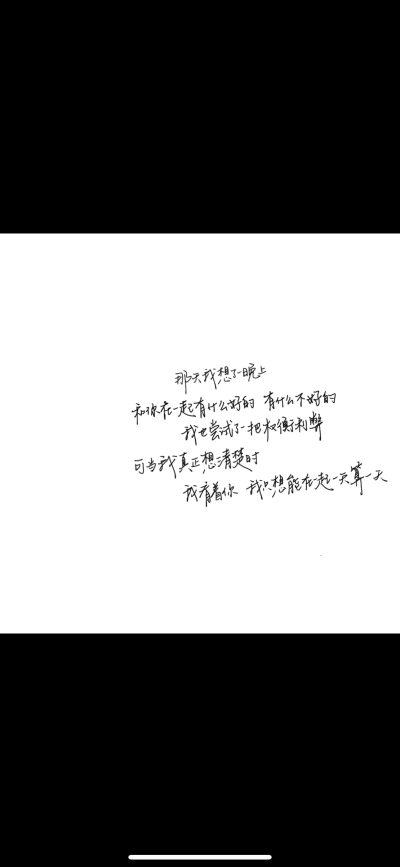 那天我想了一晚上
和你在一起有什么好的 有什么不好的
我也尝试了一把权衡利弊
可当我真正想清楚时
我看着你 我只想能在一起一天算一天